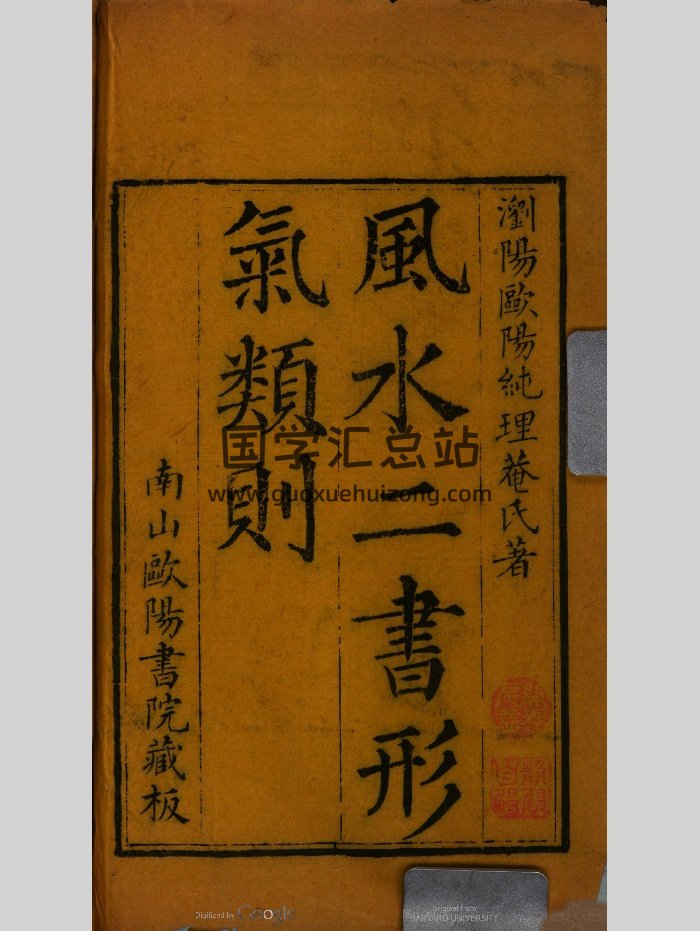 瀏陽歐陽純理菴氏著
風水二書形
氣類則
南山歐陽書院藏板
国学汇总站
www.guoxuehuizong.com
Digitized by Google
Original from
HARVARD UNIVERSITY